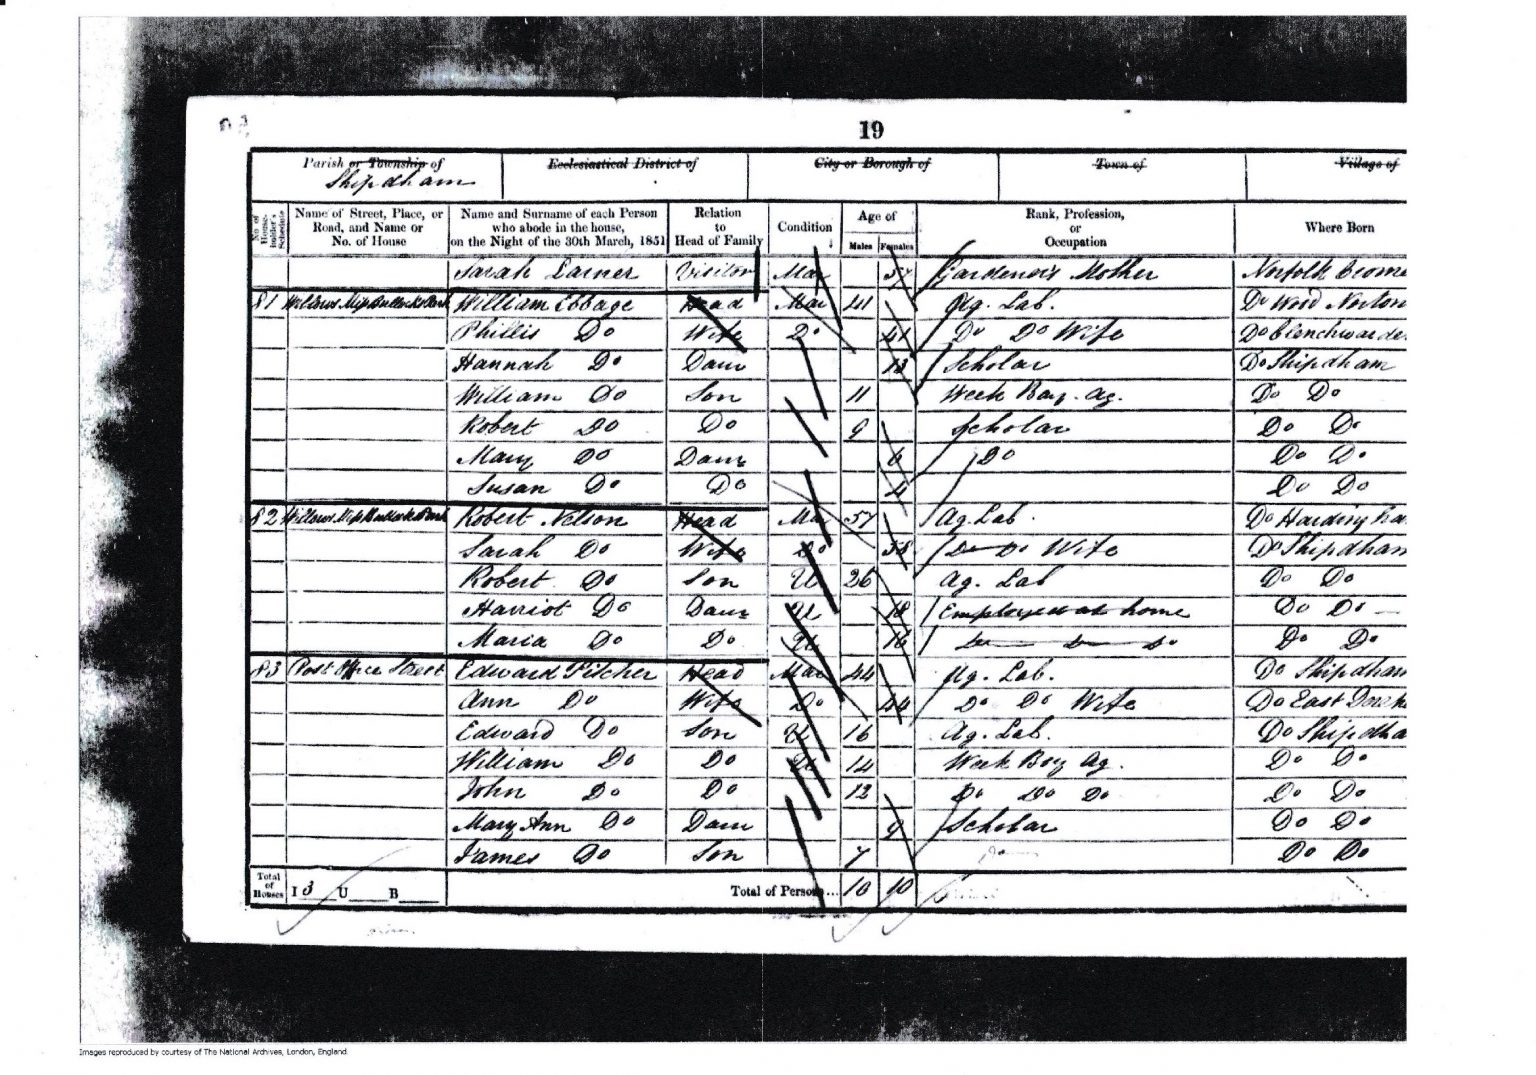 19
Parish or Township of
Shipdham
Ecclesiastical District of
City or Borough of
Town of
Village of
No of House-holder's Schedule
Name of Street, Place, or Road, and Name or No. of House
Name and Surname of each Person who abode in the house, on the Night of the 30th March, 1851
Relation to Head of Family
Condition
Age of
Males Females
Rank, Profession, or Occupation
Where Born
Sarah Larner Visitor Mar 57 Gardener's Mother Norfolk
81 William Ebbage Head Mar 41 Ag. Lab. Do Wood Norton
Phillis Do Wife Do 41 Do Do Wife Do
Hannah Do Daur 13 Scholar Do Shipdham
William Do Son 11 Week Boy. Ag. Do Do
Robert Do Do 9 Scholar Do Do
Mary Do Daur 6 Do Do Do
Susan Do Do 4 Do Do
82 Robert Nelson Head Mar 57 Ag. Lab. Do
Sarah Do Wife Do 58 Do Do Wife Do Shipdham
Robert Do Son U 26 Ag. Lab Do Do
Harriot Do Daur U 18 Employed at home Do Do
Maria Do Do U 16 Do Do Do Do Do
83 Post Office Street Edward Pitcher Head Mar 44 Ag. Lab. Do Shipdham
Ann Do Wife Do 44 Do Do Wife Do East
Edward Do Son U 16 Ag. Lab. Do Shipdha
William Do Do U 14 Week Boy Ag. Do Do
John Do Do 12 Do Do Do Do Do
Mary Ann Do Daur 9 Scholar Do Do
James Do Son 7 Do Do
Total of Houses I 3 U B Total of Persons... 10 10
Images reproduced by courtesy of The National Archives, London, England.